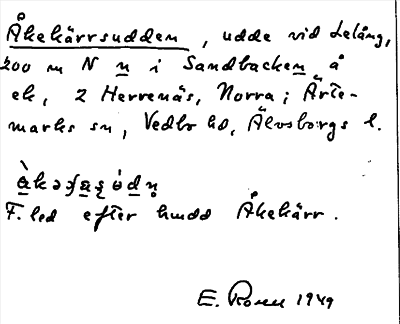 Åkekärrsudden, udde vid Lelång,
200 m N n i Sandbacken å
ek, 2 Herrenäs, Norra; Ärte-
marks sn, Vedbo hd, Älvsborgs l.
F. led efter hmdd Åkekärr.
E. Rosen 1949